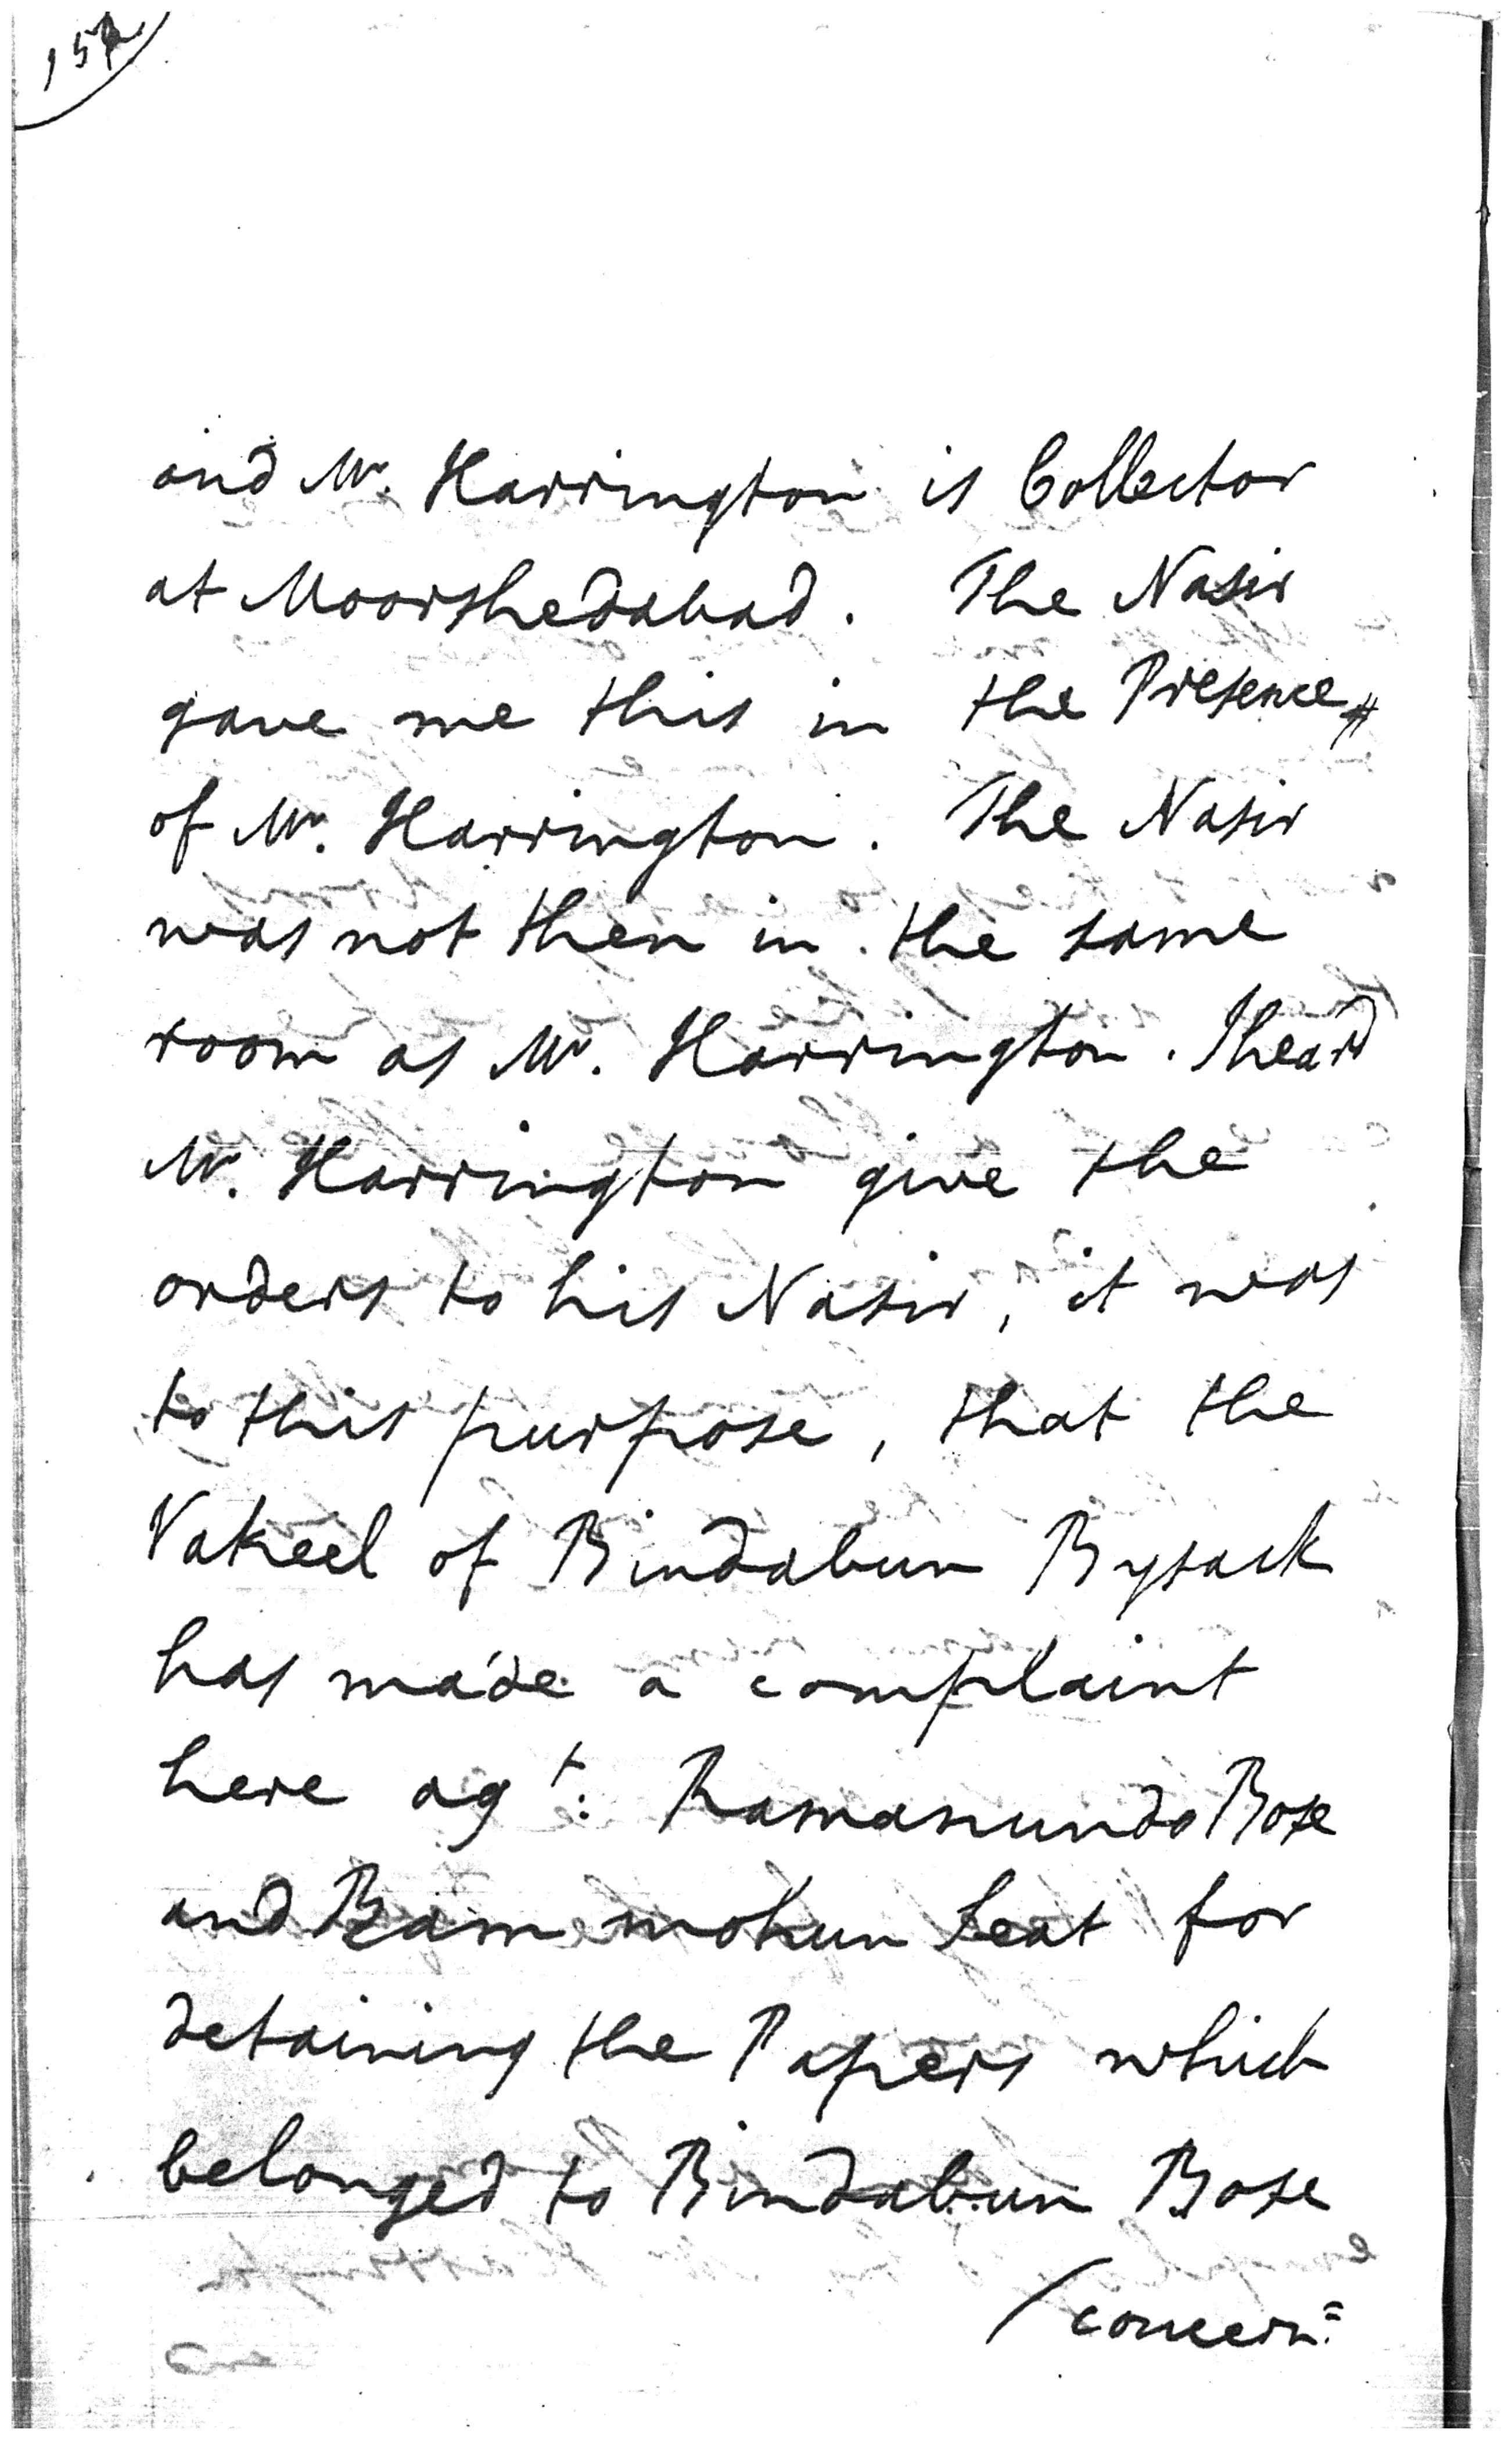 and Mr. Harrington is Collector
at Moorshedabad. The Nasir
gave me this in the Presence
of Mr. Harrington. The Nasir
was not then in the same
room as Mr. Harrington. I heard
Mr. Harrington give the
orders to his Nasir, it was
to this purpose, that the
Vakeel of Bindabun Bysack
has made a complaint
here agt: Ramanundo Bose
and Ram mohun Seat for
detaining the Papers which
belonged to Bindabun Bose
/concern=